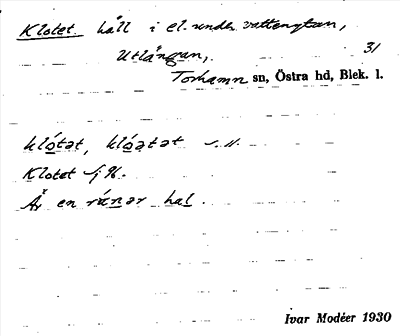 Klotet. håll i el. under vattenytan,
Utlångan,. 31
Torhamn sn, Östra hd, Blek. l.
klótət, klóatət
Klotet sj K.
År en rúnər hal.
Ivar Modéer 1930